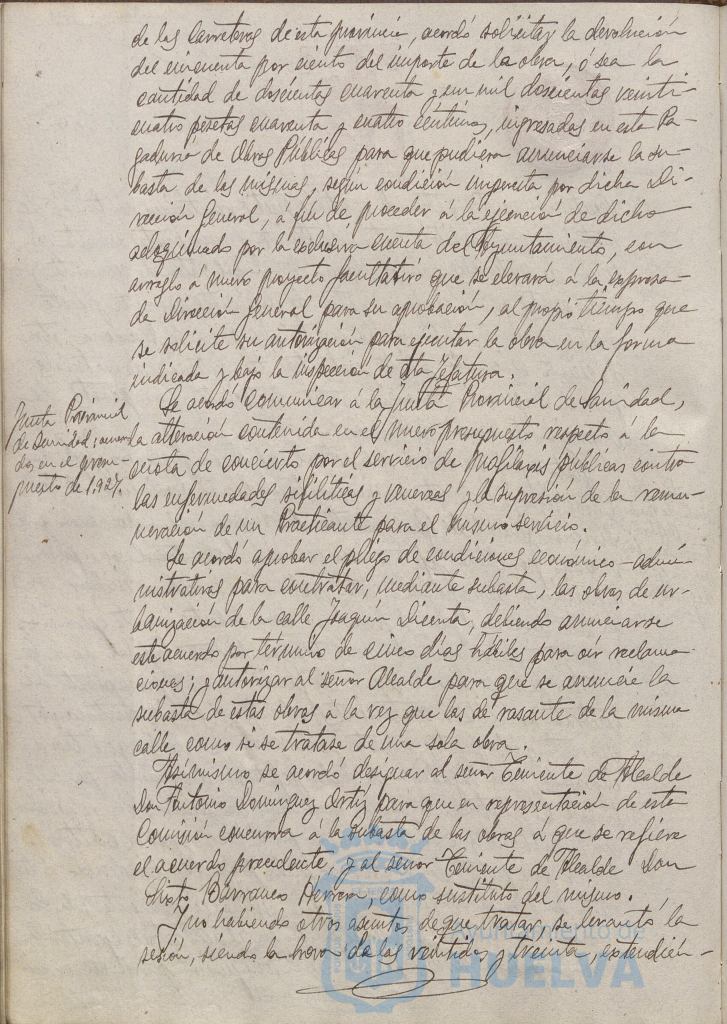 de las carreteras de esta provincia, acordó solicitar la devolución
del cincuenta por ciento del importe de la obra, ó sea la
cantidad de doscientas cuarenta y un mil doscientas veinti-
cuatro pesetas cuarenta y cuatro céntimos, ingresadas en esta Pa-
gaduría de Obras Públicas para que pudiera anunciarse la su-
basta de las mismas, según condición impuesta por dicha Di-
rección General, á fin de proceder á la ejecución de dicho
adoquinado por la exclusiva cuenta del Ayuntamiento, con
arreglo á nuevo proyecto facultativo que se elevará á la expresa-
da Dirección General para su aprobación, al propio tiempo que
se solicite su autorización para ejecutar la obra en la forma
indicada y bajo la inspección de esta Jefatura.
Junta Provincial
de Sanidad; acuer
dos en el presu-
puesto de 1.927.
Se acordó comunicar á la Junta Provincial de Sanidad,
la alteración contenida en el nuevo presupuesto respecto á la
cuota de concierto por el servicio de profilaxis públicas contra
las enfermedades sifilíticas y venereas y la supresión de la remu-
neración de un Practicante para el mismo servicio.
Se acordó aprobar el pliego de condiciones económico-admi-
nistrativas para contratar, mediante subasta, las obras de ur-
banización de la calle Joaquín Dicenta, debiendo anunciarse
este acuerdo por término de cinco días hábiles para oir reclama-
ciones; y autorizar al señor Alcalde para que se anuncie la
subasta de estas obras á la vez que las de rasante de la misma
calle como si se tratase de una sola obra.
Asimismo se acordó designar al señor Teniente de Alcalde
Don Antonio Domínguez Ortíz para que en representación de esta
Comisión concurra á la subasta de las obras á que se refiere
el acuerdo precedente, y al señor Teniente de Alcalde Don
Sixto Barranco Herrera, como sustituto del mismo.
Y no habiendo otros asuntos de que tratar, se levantó la
sesión, siendo la hora de las veintidos y treinta, extendién-
Ayuntamiento de
HUELVA